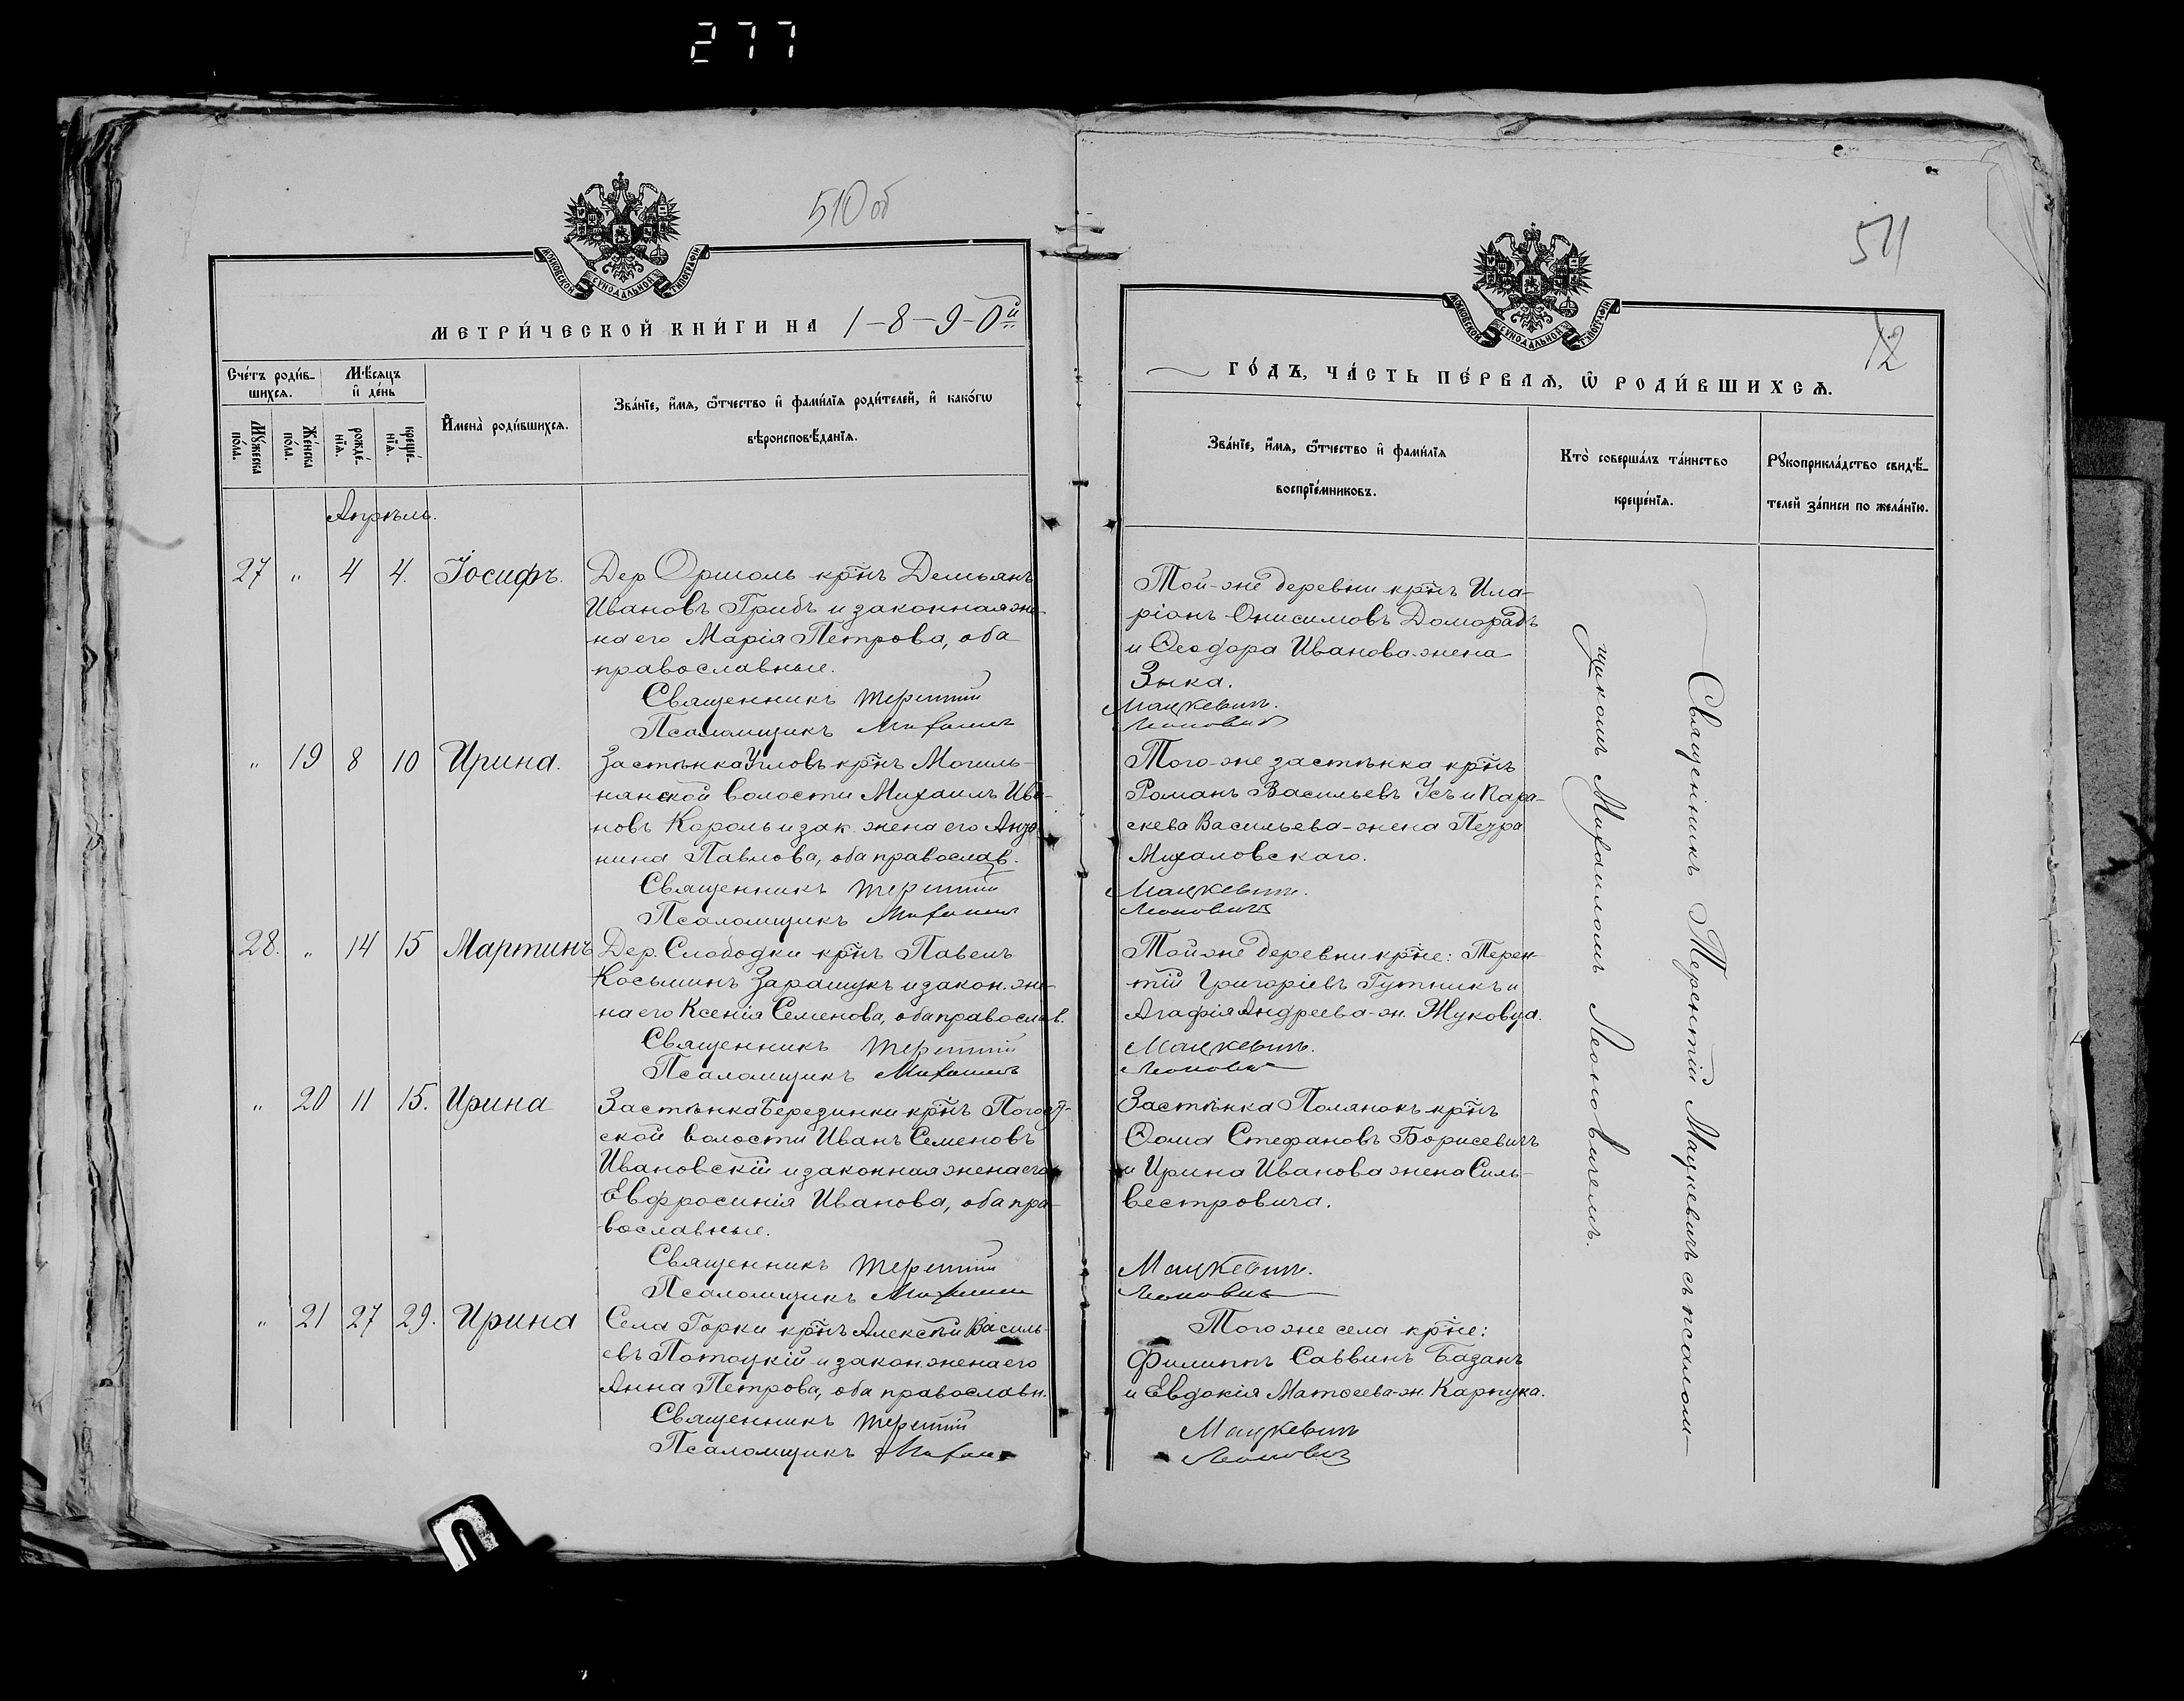 277
510 об
МОСКОВСКОЙ СУНОДАЛЬНОЙ ТИПОГРАФІИ
МЕТРИ́ЧЕСКОЙ КНИ́ГИ НА 1-8-9-0й
Сче́тъ роди́в-
шихсѧ.
Мѣ́сѧцъ
и҆ де́нь
И҆мена̀ роди́вшихсѧ.
Зва́нїе, и҆́мѧ, ѻ҆́тчество и҆ фами́лїѧ роди́телей, и҆ како́гѡ
вѣроисповѣ́данїѧ.
Мꙋ́жеска
по́ла.
Же́нска
по́ла.
рожде́-
нїѧ.
креще́-
нїѧ.
Апрѣль.
27 " 4 4. Іосифъ. Дер. Оршоль крн̃ъ Демьянъ
Ивановъ Грибъ и законная же-
на его Марія Петрова, оба
православные.
Священникъ Терентій
Псаломщикъ Михаилъ
" 19 8 10 Ирина. Застѣнка Угловъ крн̃ъ Могиль-
нянской волости Михаилъ Ива-
новъ Король и зак. жена его Анто-
нина Павлова, оба православ.
Священникъ Терентій
Псаломщикъ Михаилъ
28. " 14 15 Мартинъ Дер. Слободки крн̃ъ Павелъ
Косьминъ Зарашукъ и закон. же-
на его Ксенія Семенова, оба православ.
Священникъ Терентій
Псаломщикъ Михаилъ
" 20 11 15. Ирина Застѣнка Березинки крн̃ъ Погост-
ской волости Иванъ Семеновъ
Ивановскій и законная жена его
Евфросинія Иванова, оба пра-
вославные.
Священникъ Терентій
Псаломщикъ Михаилъ
" 21 27 29. Ирина Села Горки крн̃ъ Алексѣй Василь-
евъ Потоцкій и закон. жена его
Анна Петрова, оба православн.
Священникъ Терентій
Псаломщикъ Михаилъ
511
12
МОСКОВСКОЙ СУНОДАЛЬНОЙ ТИПОГРАФІИ
ГО́ДЪ, ЧА́СТЬ ПЕ́РВАѦ, Ѡ҆ РОДИ́ВШИХСѦ.
Зва́нїе, и҆́мѧ, ѻ҆́тчество и҆ фами́лїѧ
воспрїе́мниковъ.
Кто̀ соверша́лъ та́инство
креще́нїѧ.
Рꙋкоприкла́дство свидѣ́-
телей за́писи по жела́нїю.
Той-же деревни крн̃ъ Ила-
ріонъ Онисимовъ Доморадъ
и Ѳеодора Иванова жена
Зыка.
Мацкевичъ.
Леоновичъ
Того-же застѣнка крн̃ъ
Романъ Васильевъ Усъ и Пара-
скева Васильева-жена Петра
Михаловскаго.
Мацкевичъ.
Леоновичъ
Той же деревни крн̃е: Терен-
тій Григоріевъ Гутникъ и
Агафія Андреева-ж. Жуковца.
Мацкевичъ.
Леоновичъ
Застѣнка Полянокъ крн̃ъ
Ѳома Стефановъ Борисевичъ
и Ирина Иванова жена Силь-
вестровича.
Мацкевичъ.
Леоновичъ
Того же села крн̃е:
Филиппъ Саввинъ Базанъ
и Евдокія Матѳеева-ж. Карпука.
Мацкевичъ
Леоновичъ
Священникъ Терентій Мацкевичъ съ псалом-
щикомъ Михаиломъ Леоновичемъ.